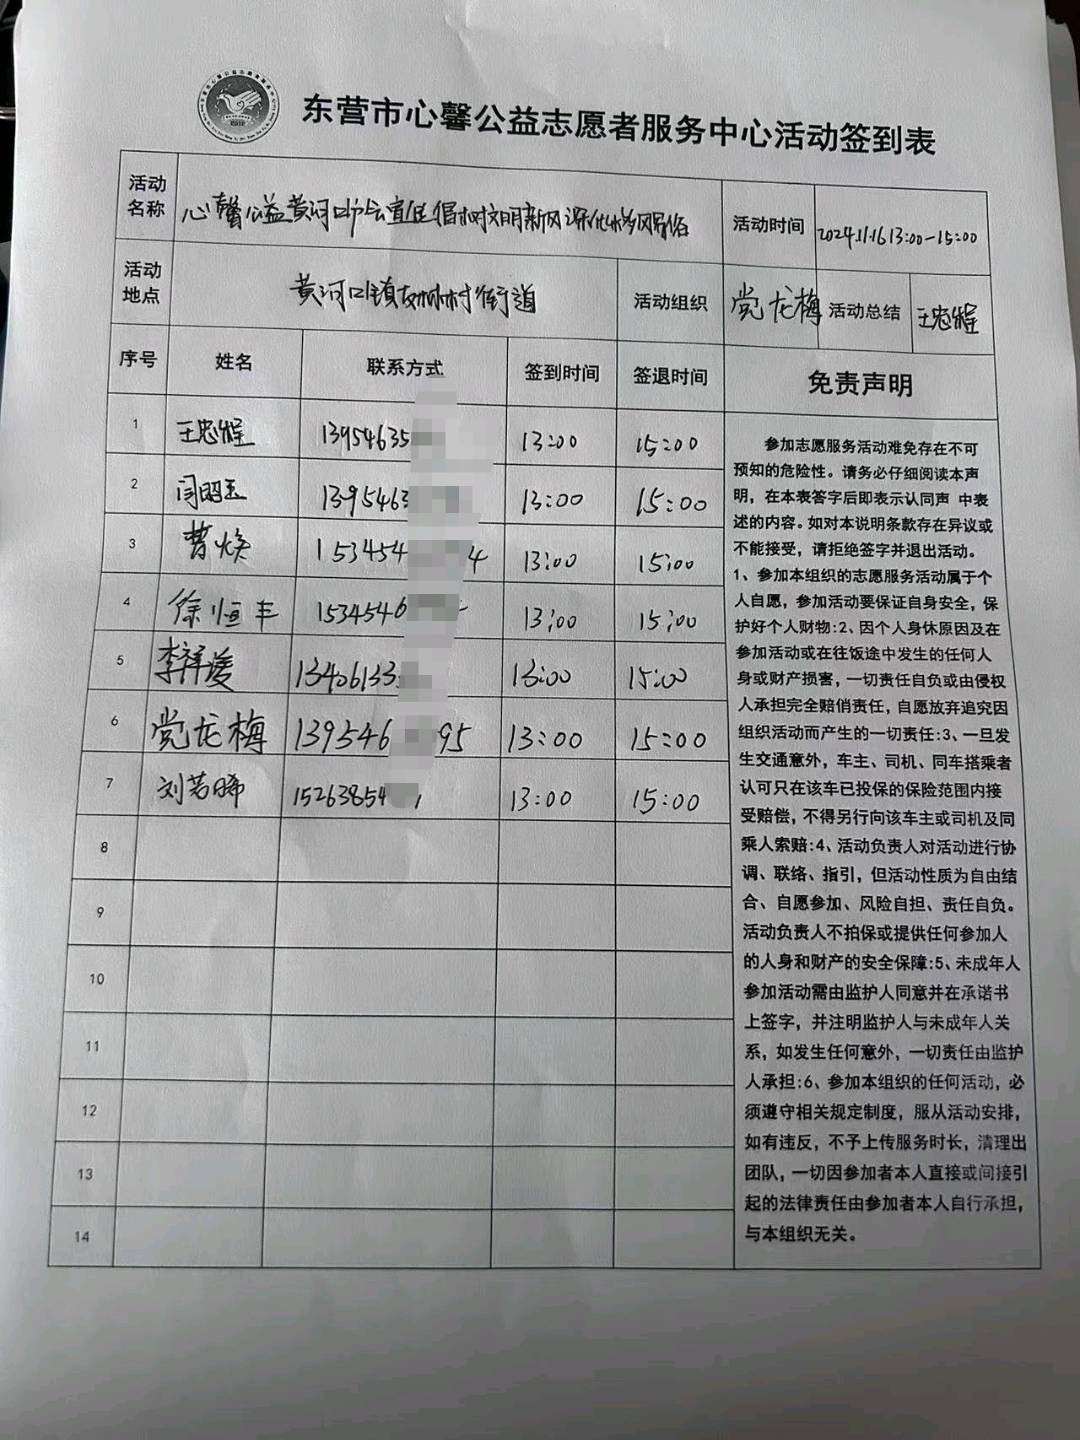 东营市心馨公益志愿者服务中心活动签到表
活动名称 心馨公益黄河口 倡树文明新风深化移风易俗 活动时间 2024.11.16 13:00-15:00
活动地点 黄河口镇 村街道 活动组织 党龙梅 活动总结 王忠程
序号 姓名 联系方式 签到时间 签退时间 免责声明
1 王忠程 13954635 13:00 15:00
2 闫昭玉 1395463 13:00 15:00
3 曹焕 153454 4 13:00 15:00
4 徐恒丰 1534546 13:00 15:00
5 李祥 13406133 13:00 15:00
6 党龙梅 139546 95 13:00 15:00
7 刘若晞 15263854 13:00 15:00
8
9
10
11
12
13
14
参加志愿服务活动难免存在不可
预知的危险性。请务必仔细阅读本声
明，在本表签字后即表示认同声 中表
述的内容。如对本说明条款存在异议或
不能接受，请拒绝签字并退出活动。
1、参加本组织的志愿服务活动属于个
人自愿，参加活动要保证自身安全，保
护好个人财物:2、因个人身休原因及在
参加活动或在往饭途中发生的任何人
身或财产损害，一切责任自负或由侵权
人承担完全赔俏责任，自愿放弃追究因
组织活动而产生的一切责任:3、一旦发
生交通意外，车主、司机、同车搭乘者
认可只在该车已投保的保险范围内接
受赔偿，不得另行向该车主或司机及同
乘人索赔:4、活动负责人对活动进行协
调、联络、指引，但活动性质为自由结
合、自愿参加、风险自担、责任自负。
活动负责人不拍保或提供任何参加人
的人身和财产的安全保障:5、未成年人
参加活动需由监护人同意并在承诺书
上签字，并注明监护人与未成年人关
系，如发生任何意外，一切责任由监护
人承担:6、参加本组织的任何活动，必
须遵守相关规定制度，服从活动安排，
如有违反，不予上传服务时长，清理出
团队，一切因参加者本人直接或间接引
起的法律责任由参加者本人自行承担，
与本组织无关。